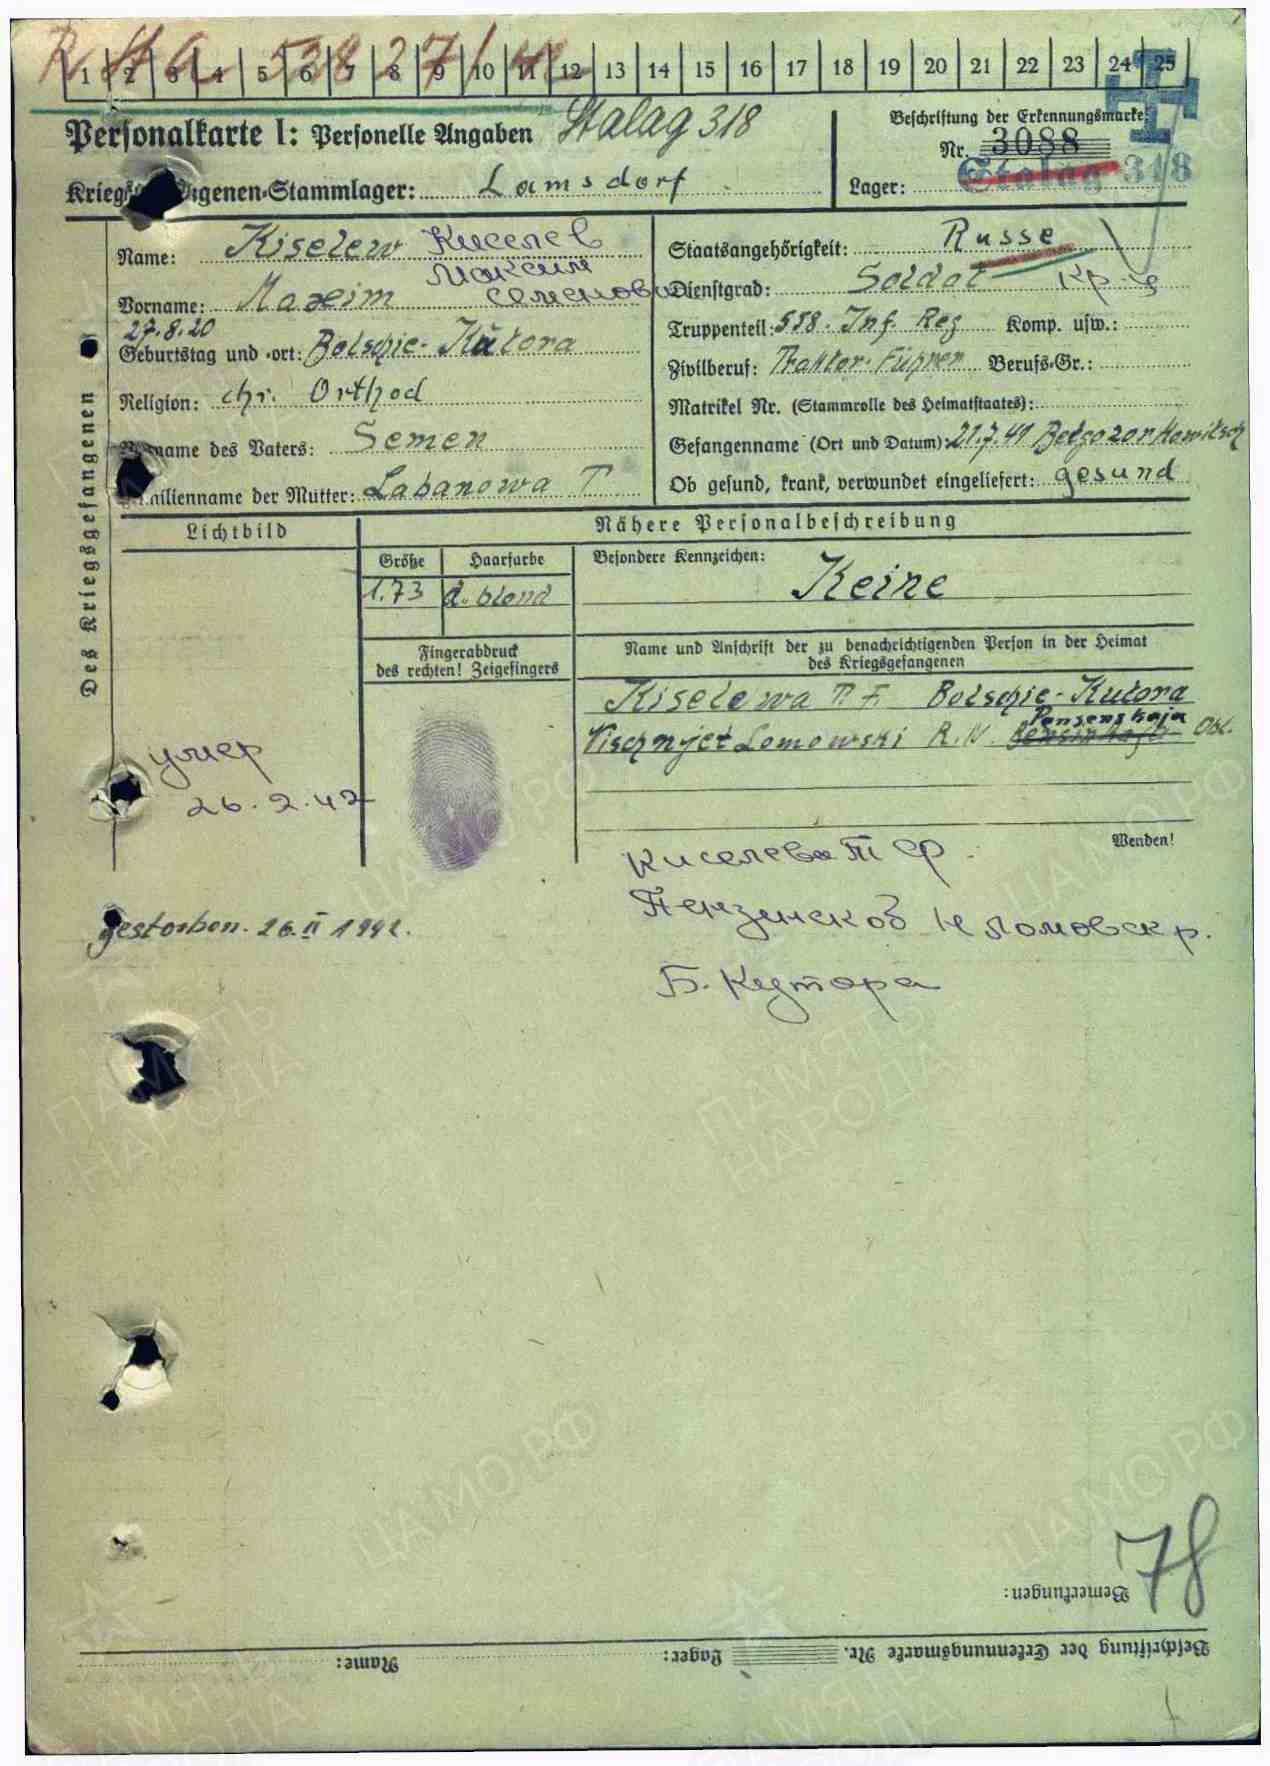 1 2 3 4 5 6 7 8 9 10 11 12 13 14 15 16 17 18 19 20 21 22 23 24 25
Personalkarte I: Personelle Angaben Stalag 318
Beschriftung der Erkennungsmarke
Nr. 3088
Kriegsgefangenen-Stammlager: Lamsdorf
Lager: Stalag 318
Des Kriegsgefangenen
Name: Kiselew Киселев
Vorname: Maxim Максим Семенович
27.8.20
Geburtstag und -ort: Bolschie-Kutora
Religion: chr. Orthod
Vorname des Vaters: Semen
Familienname der Mutter: Labanowa T
Staatsangehörigkeit: Russe
Dienstgrad: Soldat Кр-ц
Truppenteil: 558. Inf Reg Komp. usw.:
Zivilberuf: Traktor-Führer Berufs-Gr.:
Matrikel Nr. (Stammrolle des Heimatstaates):
Gefangenname (Ort und Datum): 21.7.41
Ob gesund, krank, verwundet eingeliefert: gesund
Lichtbild
Nähere Personalbeschreibung
Größe Haarfarbe Besondere Kennzeichen:
1.73 d. blond Keine
Fingerabdruck
des rechten! Zeigefingers
Name und Anschrift der zu benachrichtigenden Person in der Heimat
des Kriegsgefangenen
Kiselewa T. F. Bolschie-Kutora
Pensenskaja
Vischnjet Lomowski R.N. Obl.
умер
26.2.42
Wenden!
Киселева Т Ф
Пензенск об Н Ломовск р.
Б. Кутора
gestorben. 26.II 1942.
78
Bemerkungen:
Beschriftung der Erkennungsmarke Nr. Lager: Name:
ПАМЯТЬ НАРОДА
ЦА МО РФ